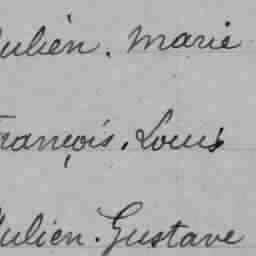 Julien. Marie
François. Louis
Julien. Gustave